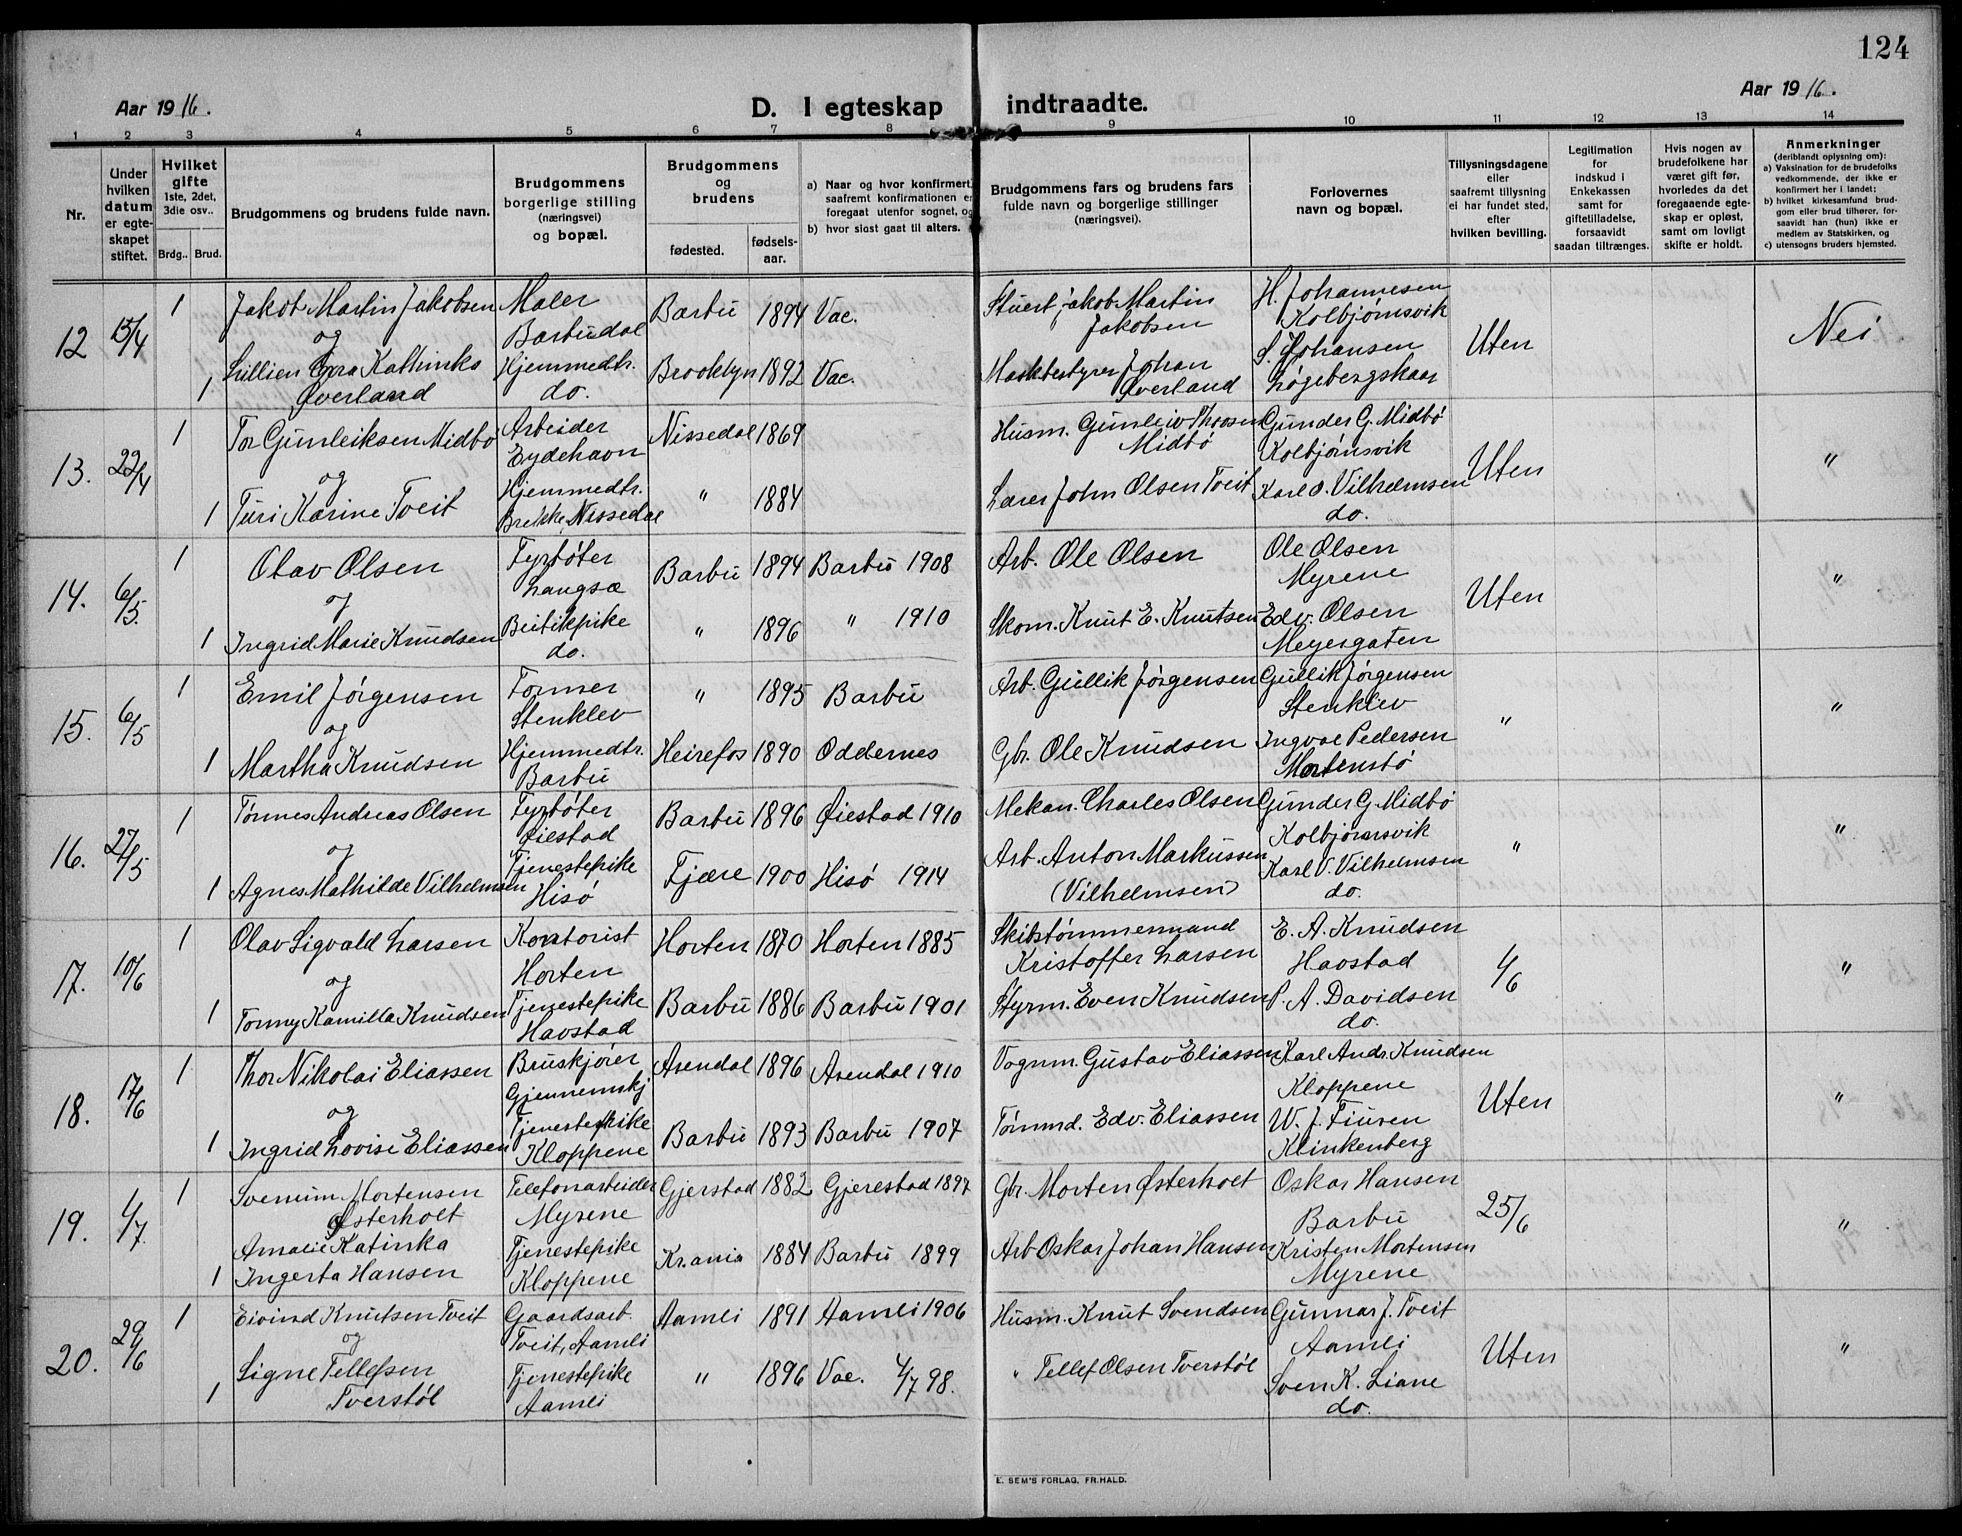 124
Aar 1916.
D. I egteskap indtraadte.
Aar 1916.
1 2 3 4 5 6 7 8 9 10 11 12 13 14
Nr.
Under hvilken datum er egteskapet stiftet.
Hvilket gifte 1ste, 2det, 3die osv..
Brdg.. Brud.
Brudgommens og brudens fulde navn.
Brudgommens borgerlige stilling (næringsvei) og bopæl.
Brudgommens og brudens
fødested.
fødselsaar.
a) Naar og hvor konfirmert, saafremt konfirmationen er foregaat utenfor sognet, og
b) hvor sidst gaat til alters.
Brudgommens fars og brudens fars fulde navn og borgerlige stillinger (næringsvei).
Forlovernes navn og bopæl.
Tillysningsdagene eller saafremt tillysning ei har fundet sted, efter hvilken bevilling.
Legitimation for indskud i Enkekassen samt for giftetilladelse, forsaavidt saadan tiltrænges.
Hvis nogen av brudefolkene har været gift før, hvorledes da det foregaaende egteskap er opløst, samt om lovligt skifte er holdt.
Anmerkninger (deriblandt oplysning om):
a) Vaksination for de brudefolks vedkommende, der ikke er konfirmert her i landet;
b) hvilket kirkesamfund brudgom eller brud tilhører, forsaavidt han (hun) ikke er medlem av Statskirken, og
c) utensogns bruders hjemsted.
12 15/4 1 Jakob Martin Jakobsen Maler Barbudal Barbu 1894 Vac. Stuert Jakob Martin Jakobsen H. Johannesen Kolbjørnsvik Uten Nei
og
1 Lillien Cora Kathinka Øverland Hjemmedtr. do. Brooklyn 1892 Vac. Maskbestyrer Johan Øverland S. Johansen Løgebergskaar
13. 22/4 1 Tor Gunleiksen Midbø Arbeider Eydehavn Nissedal 1869 Husm. Gunleiv Thorsen Midbø Gunder G. Midbø Kolbjørnsvik Uten "
og
1 Turi Karine Tveit Hjemmedtr. Brekke, Nissedal " 1884 Lærer John Olsen Tveit Karl O. Vilhelmsen do.
14. 6/5. 1 Olav Olsen Fyrbøter Langsæ Barbu 1894 Barbu 1908 Arb. Ole Olsen Ole Olsen Myrene Uten "
og
1 Ingrid Marie Knudsen do. " 1896 " 1910 Skom. Knut E. Knutsen Edv. Olsen Meyergaten
15. 6/5 1 Emil Jørgensen Former Stenklev " 1895 Barbu Arb. Gullik Jørgensen Gullik Jørgensen Stenklev " "
og
1 Martha Knudsen Hjemmedtr. Barbu Heirefos 1890 Oddernes Gbr. Ole Knudsen Ingvar Pedersen Mortensbø
16. 27/5 1 Tønnes Andreas Olsen Fyrbøter Øiestad Barbu 1896 Øiestad 1910 Mekan. Charles Olsen Gunder G. Midbø Kolbjørnsvik " "
og
1 Agnes Mathilde Vilhelmsen Tjenestepike Hisø Fjære 1900 Hisø 1914 Arb. Anton Markussen (Vilhelmsen) Karl V. Vilhelmsen do.
17. 10/6 1 Olav Sigvald Larsen Kontorist Horten Horten 1870 Horten 1885 Skibstømmermand Kristoffer Larsen E. A. Knudsen Havstad 4/6 "
og
1 Tonny Kamilla Knudsen Tjenestepike Havstad Barbu 1886 Barbu 1901 Styrm. Even Knudsen P. A. Davidsen do.
18. 17/6 1 Thor Nikolai Eliassen Bruskjører Gjennemskj Arendal 1896 Arendal 1910 Vognm. Gustav Eliassen Karl Andr. Knudsen Kloppene Uten "
og
1 Ingrid Lovise Eliassen Tjenestepike Kloppene Barbu 1893 Barbu 1907 Tømmd. Edv. Eliassen W. J. Klinkenberg
19. 1/7. 1 Svenum Mortensen Østerholt Telefonarbeider Myrene Gjerstad 1882 Gjerestad 1897 Gbr. Morten Østerholt Oskar Hansen Barbu 25/6 "
1 Amalie Katinka Ingerta Hansen Tjenestepike Kloppene Kr.ania 1884 Barbu 1899 Arb Oskar Johan Hansen Kristen Mortensen Myrene
20. 29/6 1 Eivind Knutsen Tveit Gaardsarb. Tveit, Aamli Aamli 1891 Aamli 1906 Husm. Knut Svendsen Gunnar J. Tveit Aamli Uten "
og
1 Signe Tellefsen Tverstøl Tjenestepike Aamli " 1896 Vac. 4/7 98. " Tellef Olsen Tverstøl Sven K. Liane do.
E. SEM'S FORLAG, FR.HALD.